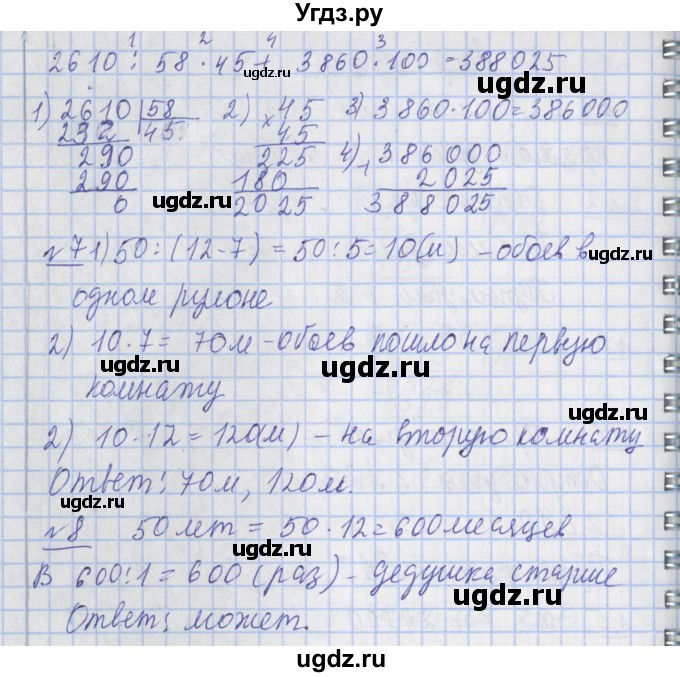 Угдз.ру
1 2 4 3
2610 : 58 · 45 + 3860 · 100 = 388025
1) 2610 | 58
232 | 45
290
290
0
2) × 45
45
225
180
2025
3) 3860 · 100 = 386000
4) + 386000
2025
388025
№7 1) 50 : (12-7) = 50 : 5 = 10(м) – обоев в
одном рулоне
2) 10 · 7 = 70м – обоев пошло на первую
комнату
2) 10 · 12 = 120(м) – на вторую комнату
Ответ: 70м, 120м.
№8 50 лет = 50 · 12 = 600 месяцев
В 600 : 1 = 600 (раз) – дедушка старше
Ответ: может.
ugdz.ru
ugdz.ru
ugdz.ru
ugdz.ru
ugdz.ru
ugdz.ru
ugdz.ru
ugdz.ru
ugdz.ru
ugdz.ru
ugdz.ru
Угдз.ру